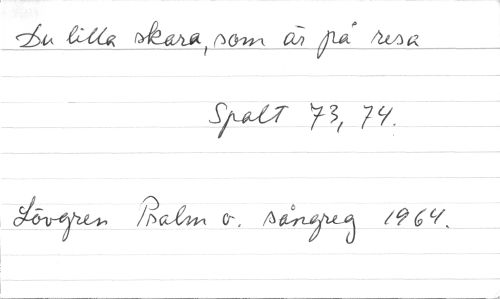 Du lilla skara, som är på resa
Spalt 73, 74.
Lövgren Psalm o. sångreg 1964.